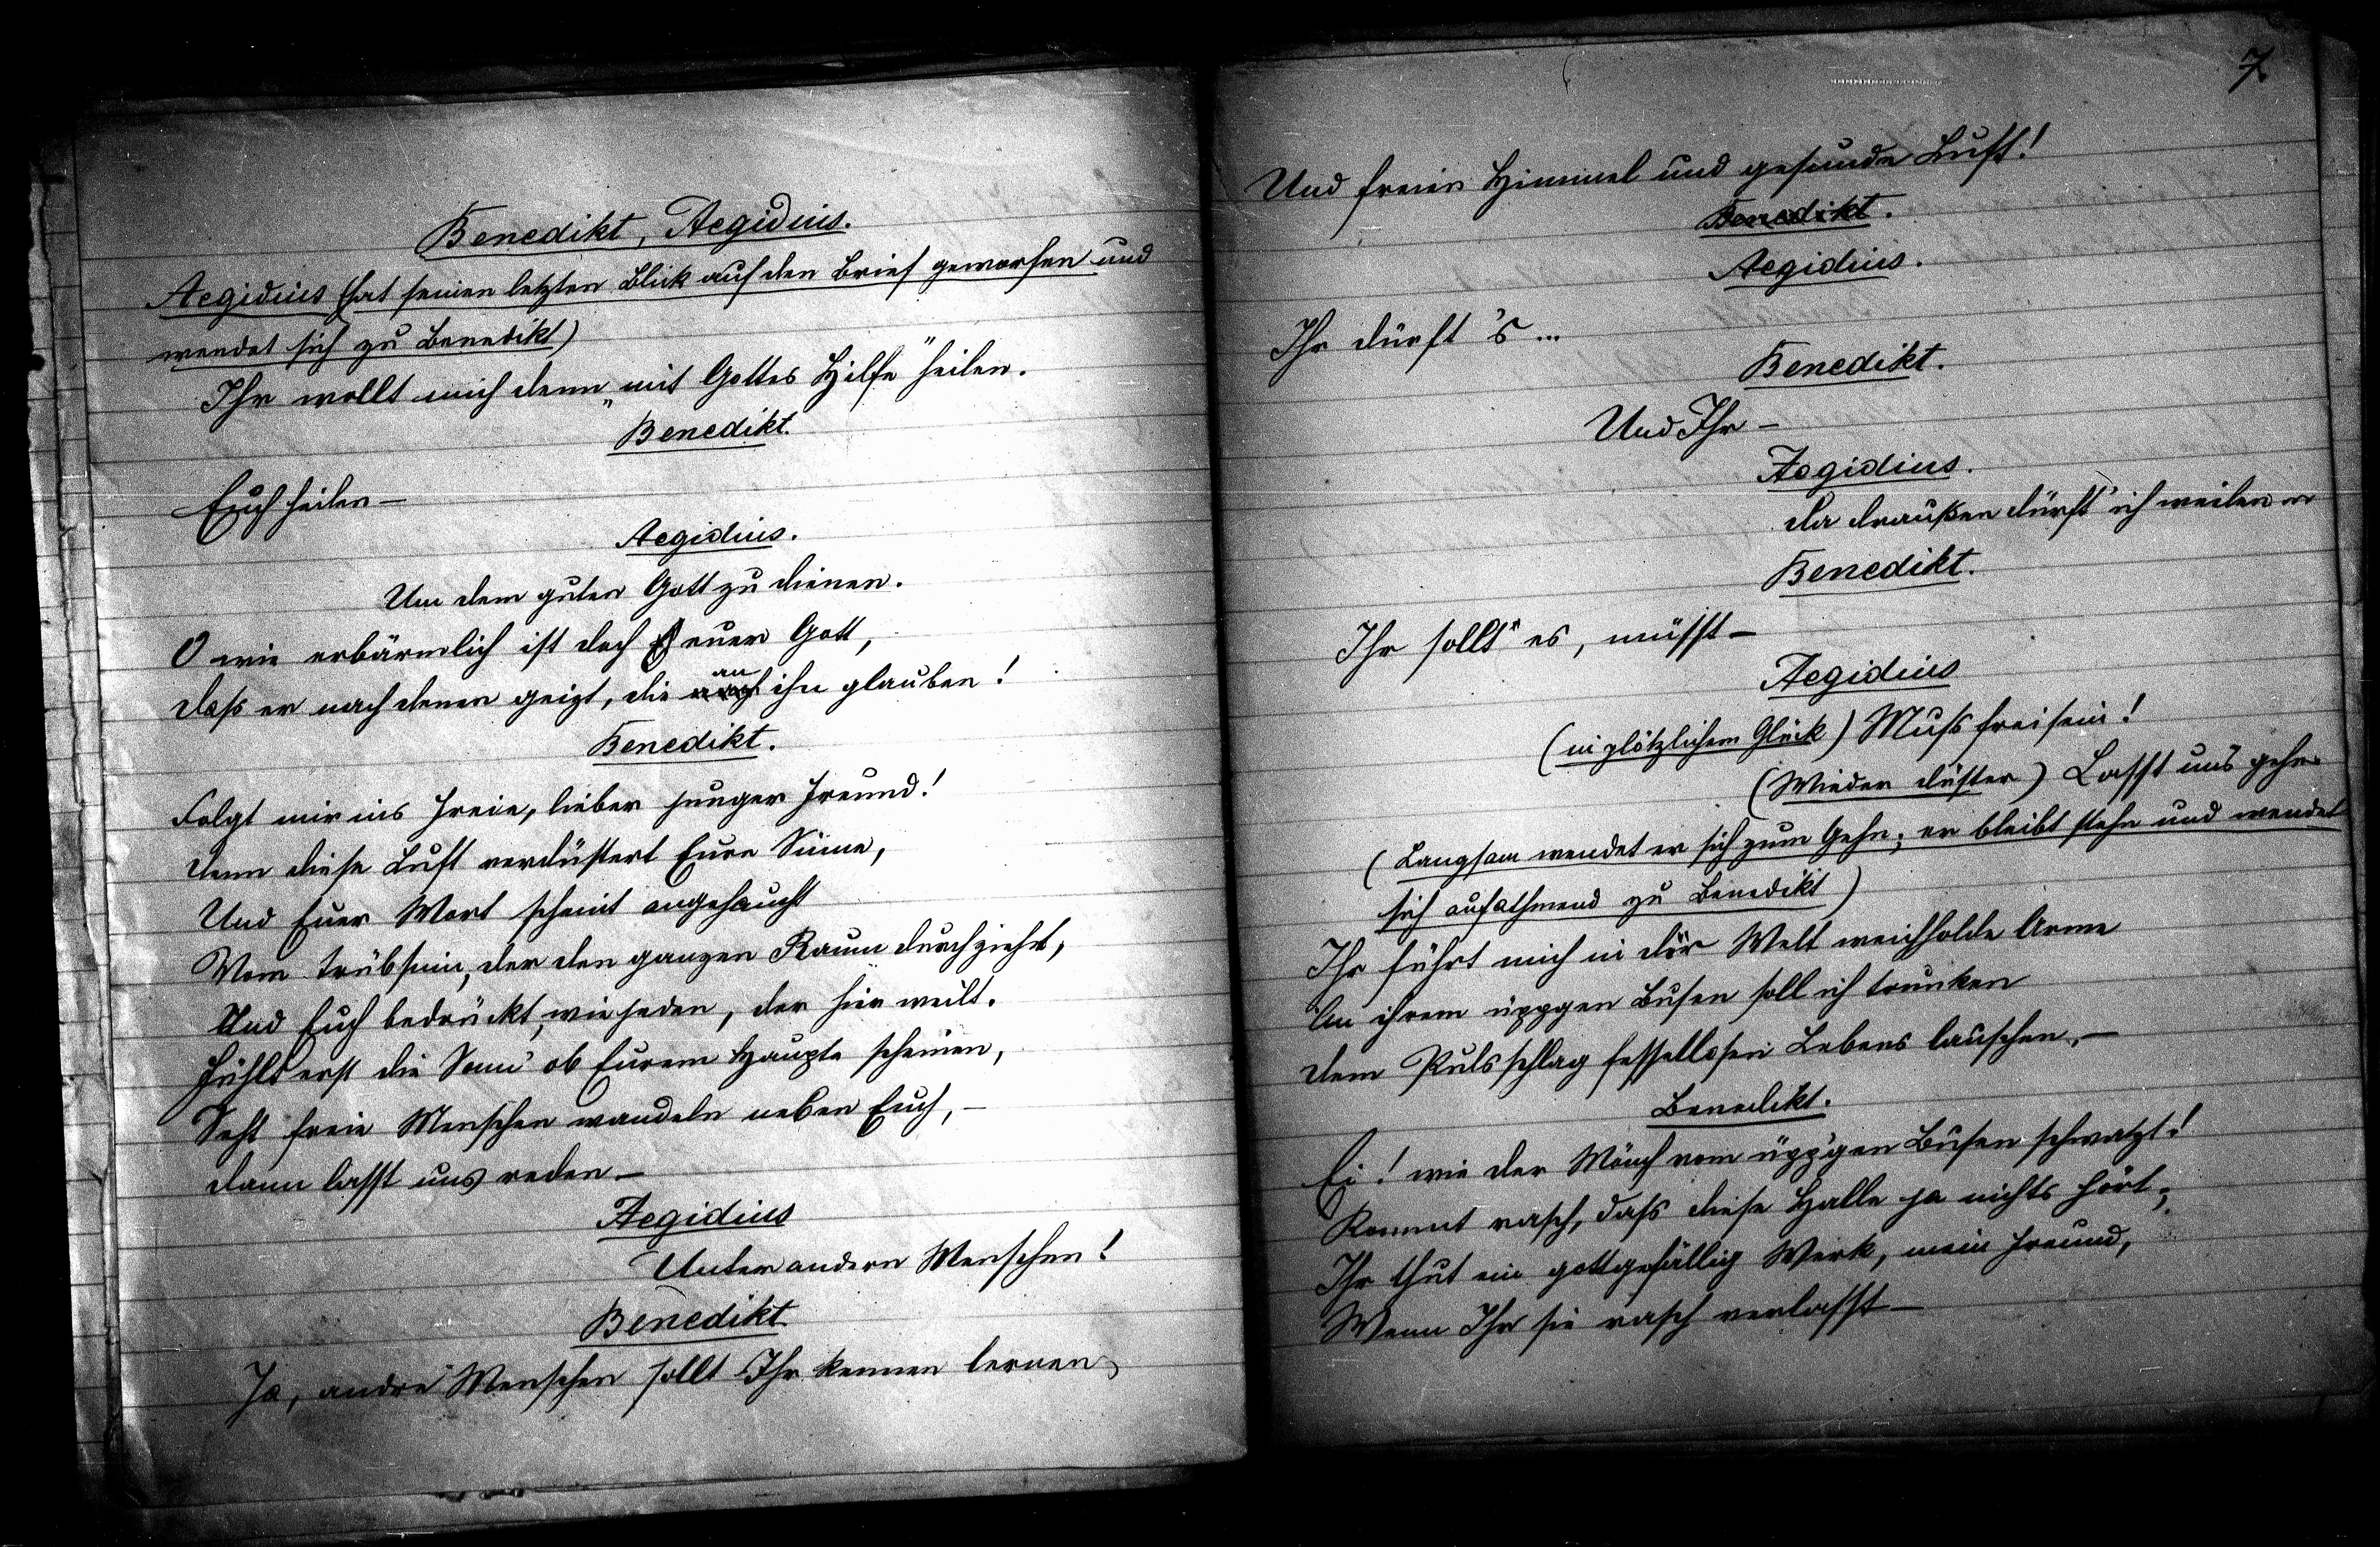 Benedikt, Aegidius.
Aegidius (hat seinen letzten Blick auf den Brief geworfen und
wendet sich zu Benedikt)
Ihr wollt mich denn „mit Gottes Hilfe" heilen.
Benedikt.
Euch heilen –
Aegidius.
Um dem guten Gott zu dienen.
O wie erbärmlich ist doch euer Gott,
Dass er nach denen geizt, die an ihn glauben!
Benedikt.
Folgt mir ins Freie, lieber junger Freund!
Denn diese Luft verdüstert Eure Sinne,
Und Euer Wort scheint angehaucht
Vom Trübsinn, der den ganzen Raum durchzieht,
Und Euch bedrückt, wie jeden, der hier weilt.
Fühlt erst die Sonn' ob Eurem Haupte scheinen,
Seht freie Menschen wandeln neben Euch, –
Dann lasst uns reden –
Aegidius
Unter andern Menschen!
Benedikt
Ja, andre Menschen sollt Ihr kennen lernen,
7
Und freien Himmel und gesunde Luft!
Benedikt.
Aegidius.
Ihr dürft 's ...
Benedikt.
Und Ihr –
Aegidius.
Da draußen dürft' ich weilen
Benedikt.
Ihr sollt es, müsst –
Aegidius
(in plötzlichem Glück) Muss frei sein!
(Wieder düster) Lasst uns gehn.
(Langsam wendet er sich zum Gehn; er bleibt stehn und wendet
sich aufathmend zu Benedikt)
Ihr führt mich in der Welt weichholde Arme
An ihrem üppgen Busen soll ich trunken
Dem Pulsschlag fessellosen Lebens lauschen, –
Benedikt.
Ei! wie der Mönch vom üpp'gen Busen schwatzt!
Kommt rasch, dass diese Halle ja nichts hört;
Ihr thut ein gottgefällig Werk, mein Freund,
Wenn Ihr sie rasch verlasst –